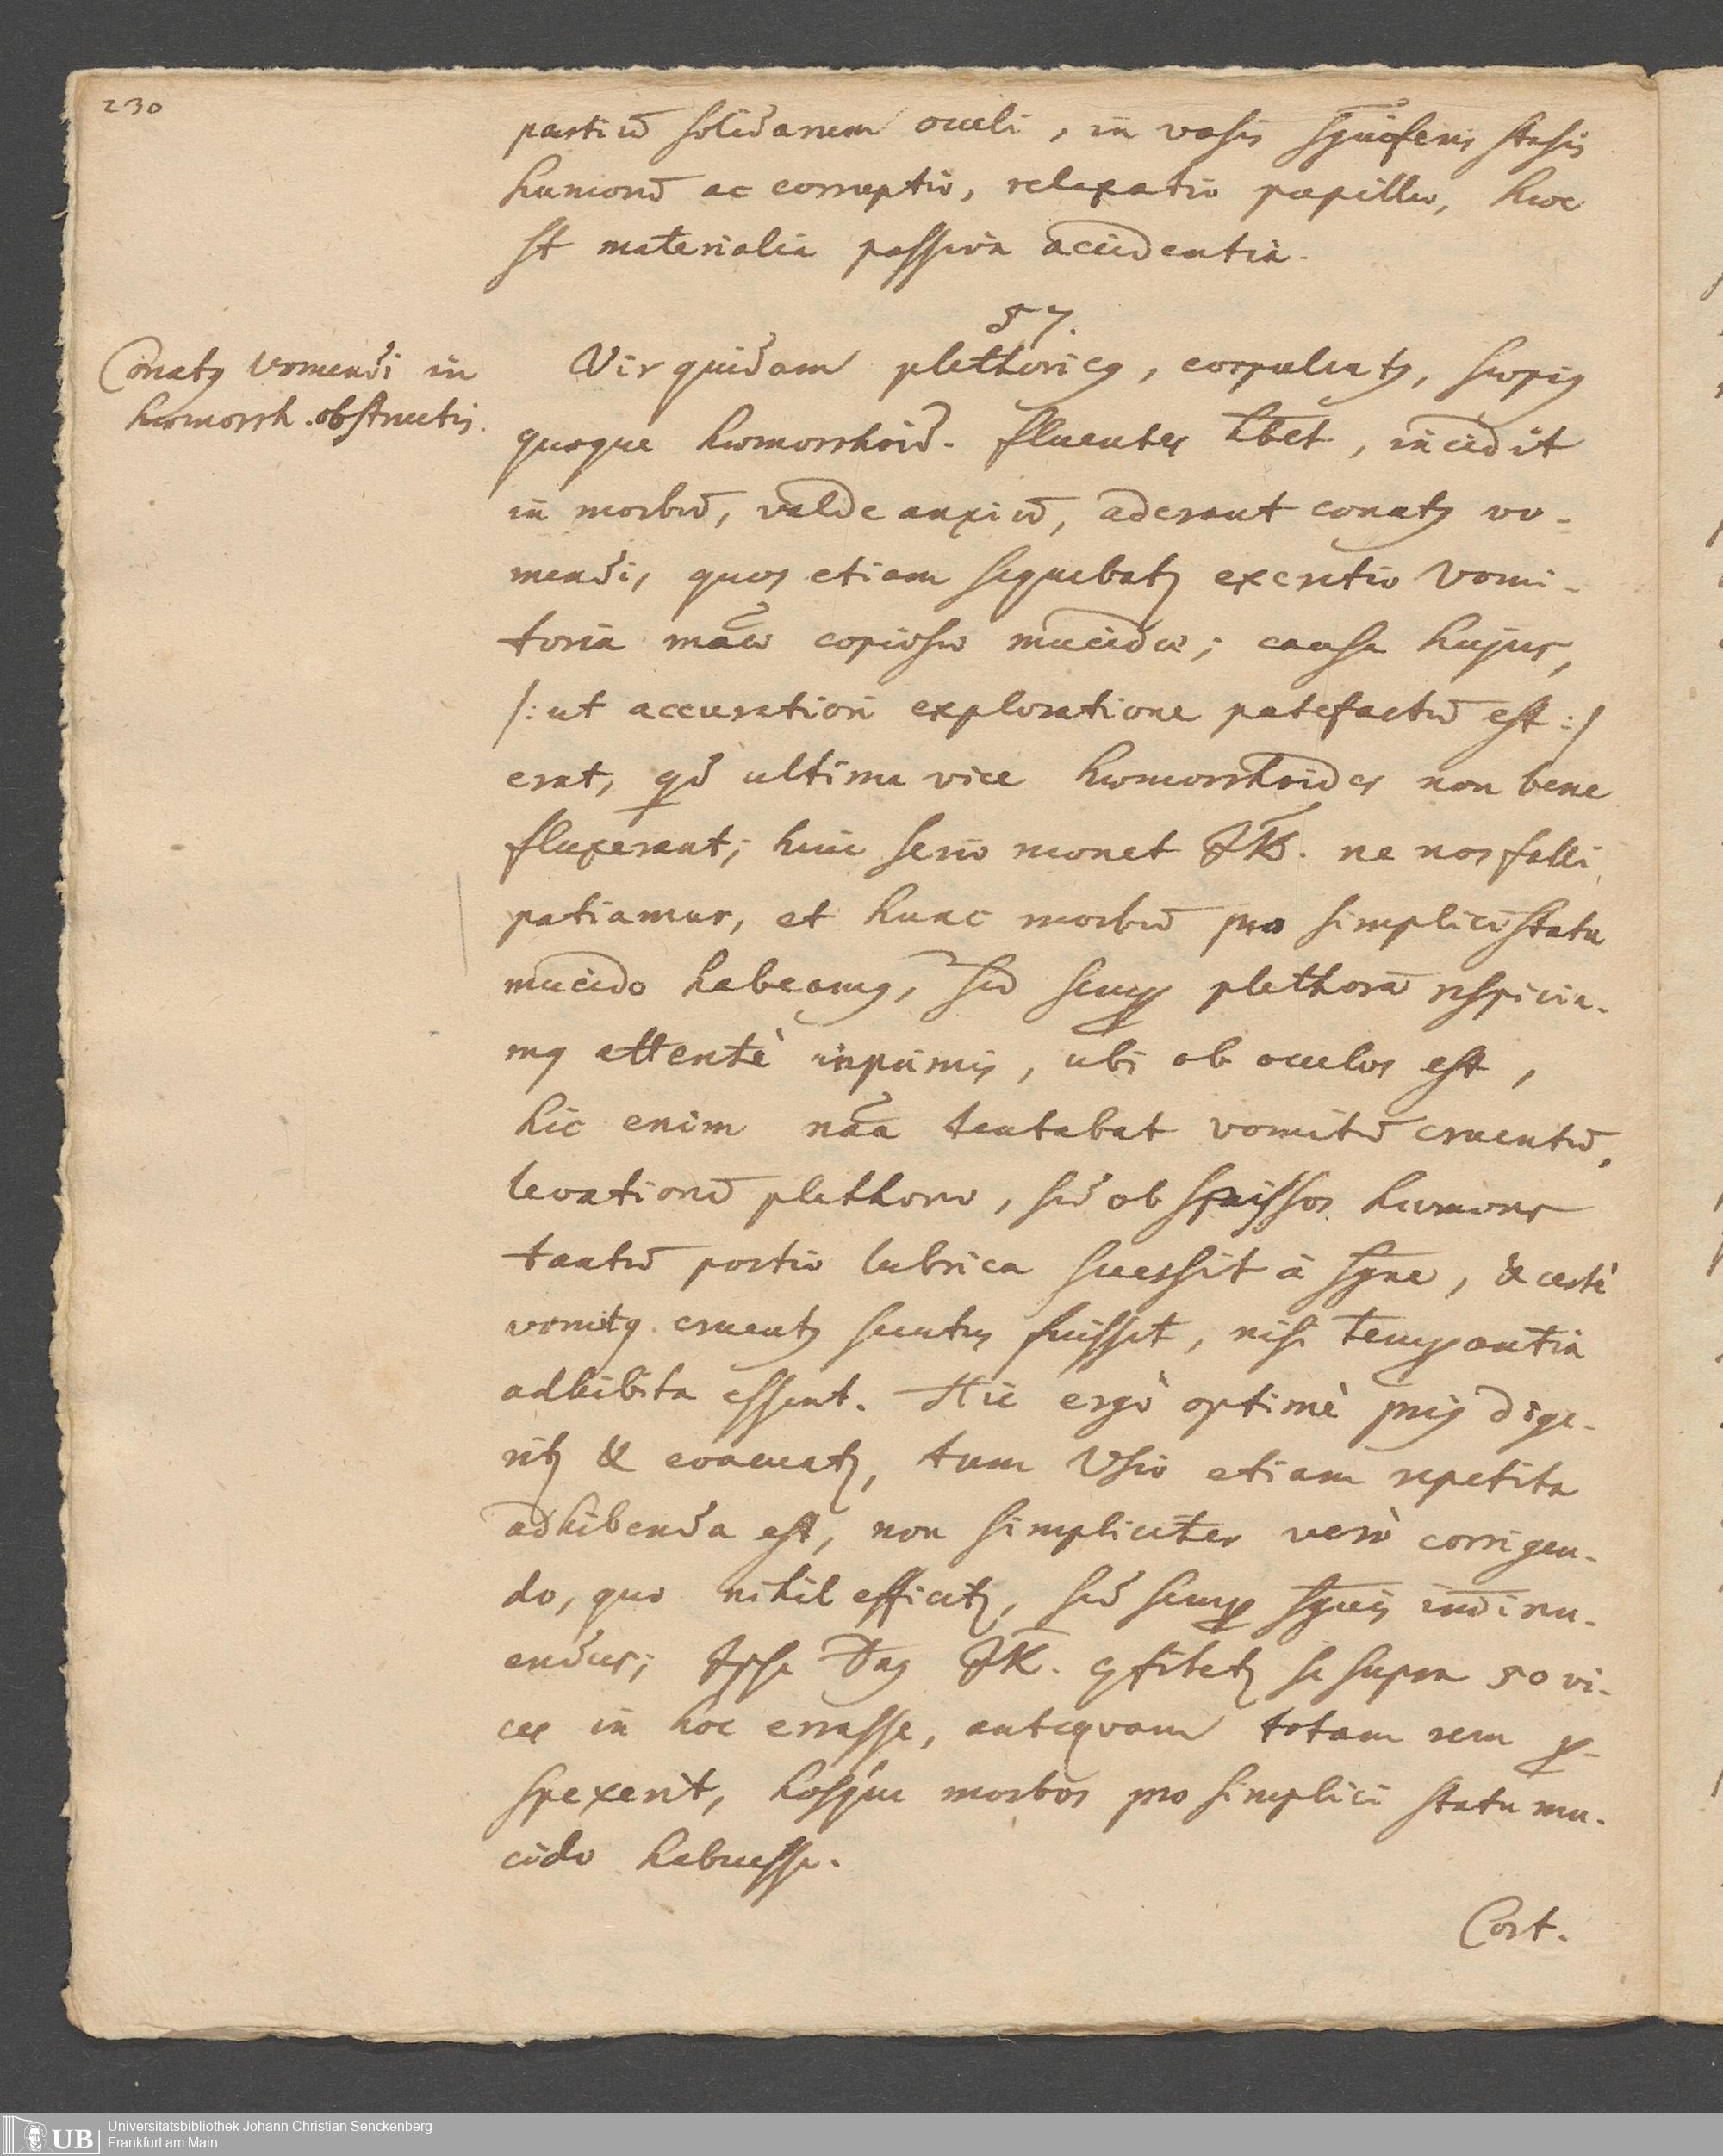 230
partiū solidarum oculi, in vasis sguiferis stasis
humorū ac corruptio, relaxatio papillæ, hæc
st materialia passiva accidentia.
57.
Conatꝯ vomendi in
hæmorrh. obstructis.
Vir quidam plethoricꝯ, corpulentꝯ, sæpiꝯ
quoque hæmorrhoid. fluentes hbet, incidit
in morbū, valde anxiū, aderant conatꝯ vo-
mendi, quos etiam sequebatꝝ excretio vomi-
toria māæ copiosæ mucidæ; causa hujus,
/: ut accuratiori exploratione patefactū est :/
erat, qd ultima vice hæmorrhoides non bene
fluxerant; hinc serio monet JK. ne nos falli
patiamur, et hunc morbū pro simplici statu
mucido habeamꝯ, sed semꝑ plethorā respicia-
mꝯ attentè inprimis, ubi ob oculos est,
hic enim nāa tentabat vomitū cruentū,
levationē plethoræ, sed ob spissos humores
tantū portio lubrica secessit à sgne, & certè
vomitꝯ cruentꝯ secutus fuisset, nisi temꝑantia
adhibita essent. Hic ergò optimè priꝯ dige-
ritꝝ & evacuatꝝ, tum Vsio etiam repetita
adhibenda est, non simpliciter verò corrigen-
do, quo nihil efficitꝝ, sed semꝑ sguis
endus; Ipse Dnꝯ JK. ꝯfitetꝝ se supra 50 vi-
ces in hoc errasse, anteqvam totam rem ꝑ-
spexerit, hosque morbos pro simplici statu mu-
cido habuisse.
Cort.
Universitätsbibliothek Johann Christian Senckenberg
UB Frankfurt am Main